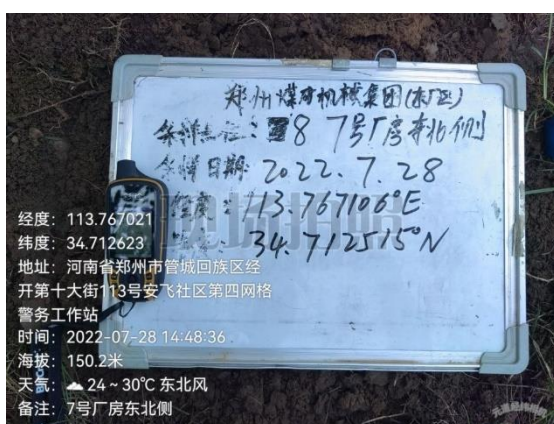 郑州煤矿机械集团(东厂区)
采样点位:8 7号厂房东北侧
采样日期:2022.7.28
经度:113.767106°E
34.712515°N
现场拍照
经度:113.767021
纬度:34.712623
地址:河南省郑州市管城回族区经
开第十大街113号安飞社区第四网格
警务工作站
时间:2022-07-28 14:48:36
海拔:150.2米
天气:☁24~30℃ 东北风
备注:7号厂房东北侧